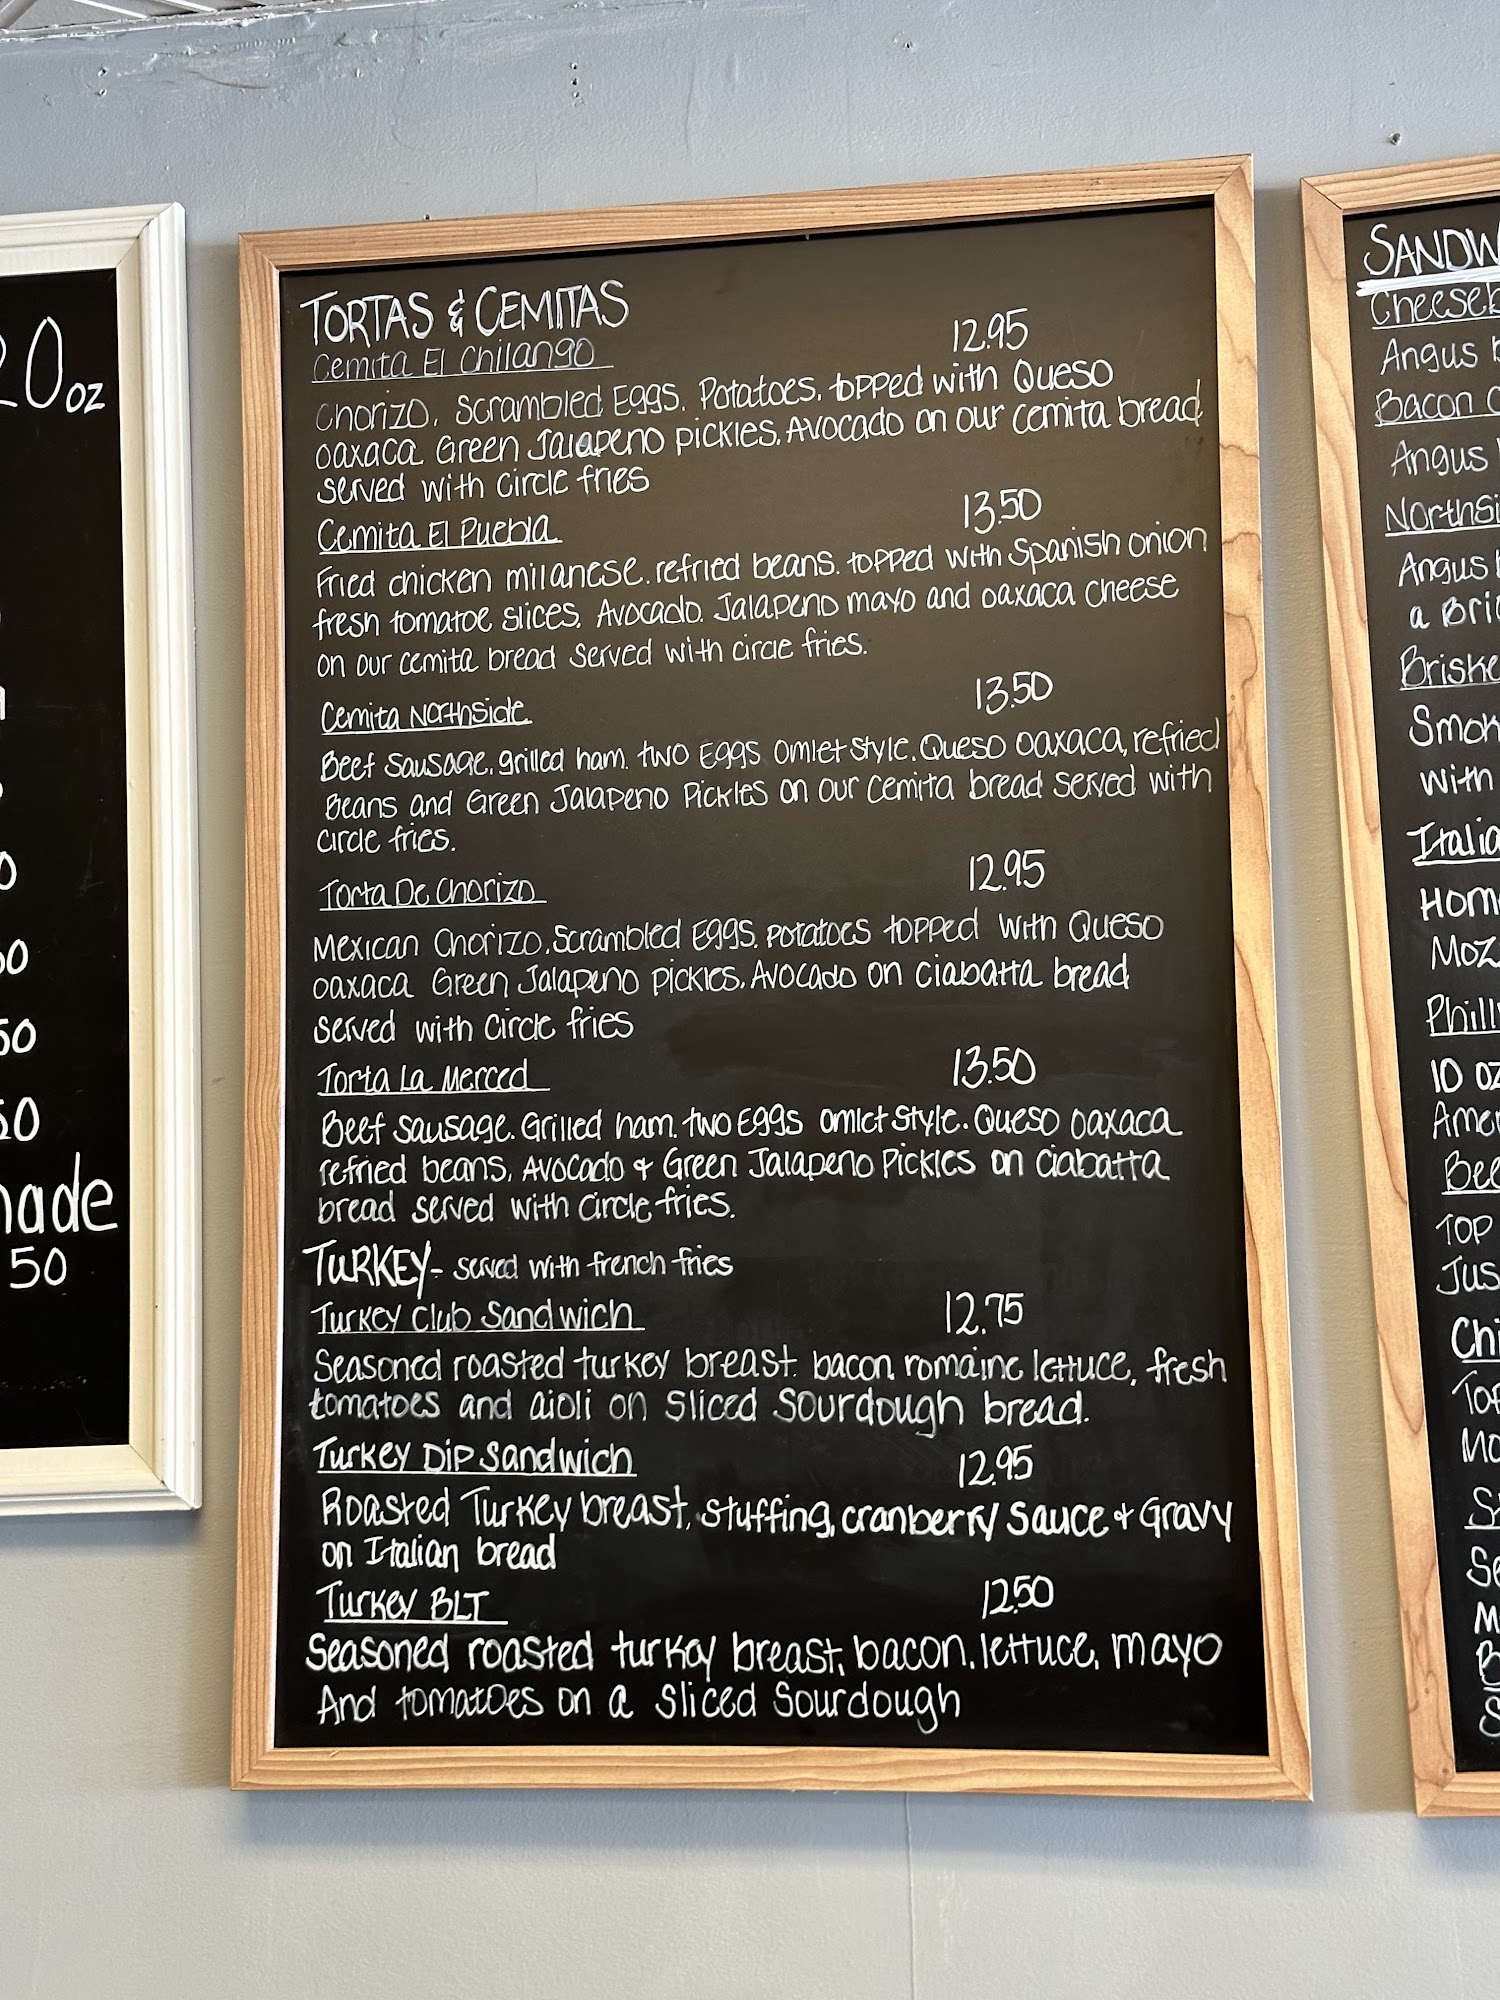 20 oz
50
50
50
made
50
TORTAS & CEMITAS
Cemita El Chilango 12.95
Chorizo, Scrambled Eggs, Potatoes, topped with Queso
oaxaca Green Jalapeno pickles, Avocado on our cemita bread
served with circle fries
Cemita El Puebla 13.50
Fried chicken milanese. refried beans. topped with Spanish onion
fresh tomatoe slices, Avocado. Jalapeno mayo and oaxaca cheese
on our cemita bread served with circle fries.
Cemita Northside 13.50
Beef Sausage, grilled ham. two Eggs omlet style. Queso oaxaca, refried
Beans and Green Jalapeno Pickles on our cemita bread served with
circle fries.
Torta De Chorizo 12.95
Mexican Chorizo, Scrambled Eggs, potatoes topped with Queso
oaxaca Green Jalapeno pickles, Avocado on ciabatta bread
served with circle fries
Torta La Merced 13.50
Beef sausage. Grilled ham. two Eggs omlet style. Queso oaxaca
refried beans, Avocado & Green Jalapeno Pickles on ciabatta
bread served with circle fries.
TURKEY- served with french fries
Turkey Club Sandwich 12.75
Seasoned roasted turkey breast. bacon romaine lettuce, fresh
tomatoes and aioli on sliced sourdough bread.
Turkey Dip Sandwich 12.95
Roasted Turkey breast, stuffing, cranberry sauce & Gravy
on Italian bread
Turkey BLT 12.50
Seasoned roasted turkey breast, bacon, lettuce, mayo
And tomatoes on a sliced sourdough
SANDW
Cheeseb
Angus
Bacon C
Angus
Northsi
Angus
a Bri
Briske
Smok
with
Italia
Hom
Moz
Philly
10 oz
Amer
Bee
TOP
Jus
Chi
Top
Mo